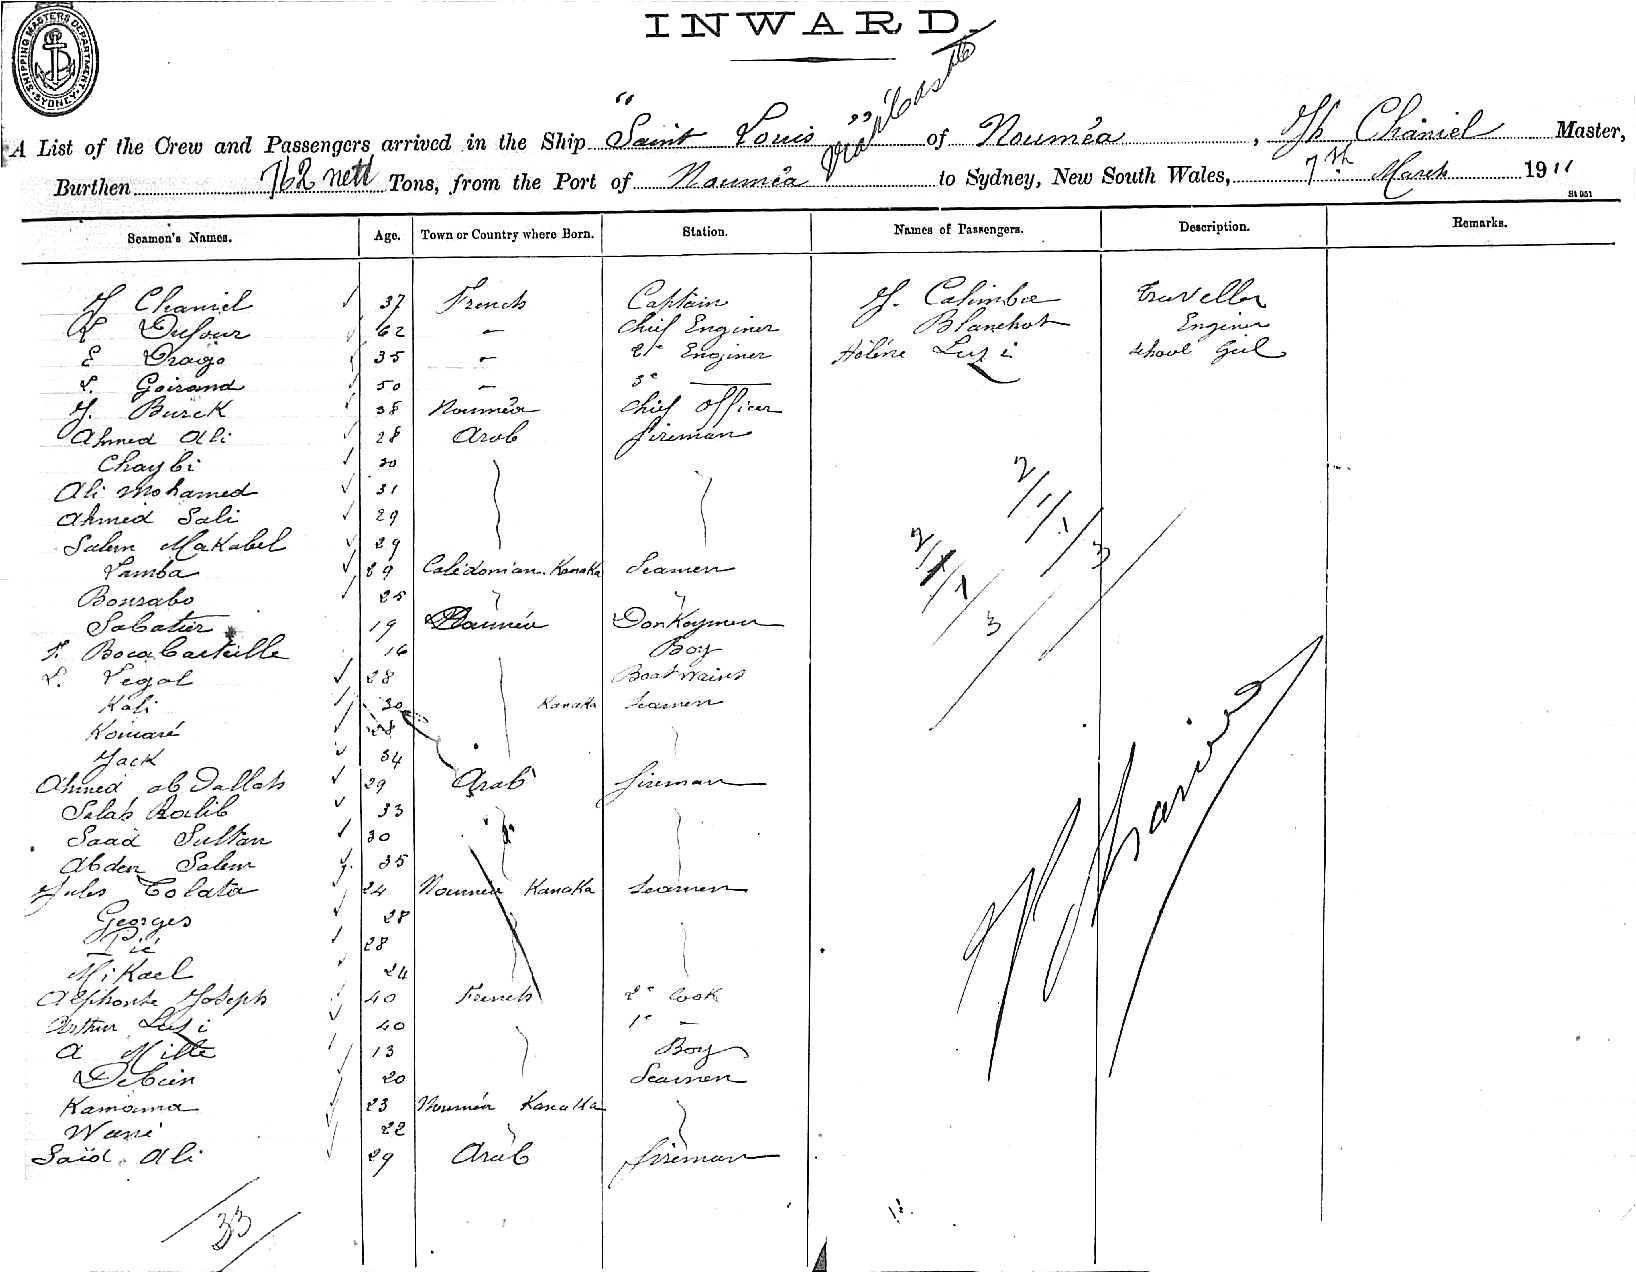 SHIPPING MASTERS DEPARTMENT · SYDNEY ·
INWARD.
A List of the Crew and Passengers arrived in the Ship "Saint Louis" of Nouméa, Master,
Burthen 762 nett Tons, from the Port of Nouméa to Sydney, New South Wales, 7th March 1911
St 951
Seamen's Names. Age. Town or Country where Born. Station. Names of Passengers. Description. Remarks.
J Chaniel 37 French Captain J. Calimbre Traveller
Dufour 62 - Chief Enginer Blanchot Enginer
E Drago 35 - 2e Enginer Hélène Luzi School Girl
L. Goirand 50 - 3e —
J. Burck 38 Nouméa Chief Officer
Ahmed Ali 28 Arab fireman
Chaybi 30
Ali Mohamed 31
Ahmed Sali 29
Salem Makabel 29
Samba 29 Calédonian Kanaka Seamen
Bourabo 25
Sabatier 19 Nouméa Donkeymen
16 Boy
L. Legal 28 Boatswains
Kali 30 Kanaka Seamen
Komaré 28
Jack 34
Ahmed ab Dallah 29 Arab fireman
Salah 33
Saad Sultan 30
Abden Salem 35
Jules Colata 24 Nouméa Kanaka Seamen
Georges 28
Pié 28
Mikael 24
Alphonse Joseph 40 French 2e Cook
Arthur Luzi 40 1e -
A Mille 13 Boy
20 Seamen
Kamouna 23 Nouméa Kanaka
22
Saïd Ali 29 Arab fireman
2/1/1/3
2/1/1/3
33